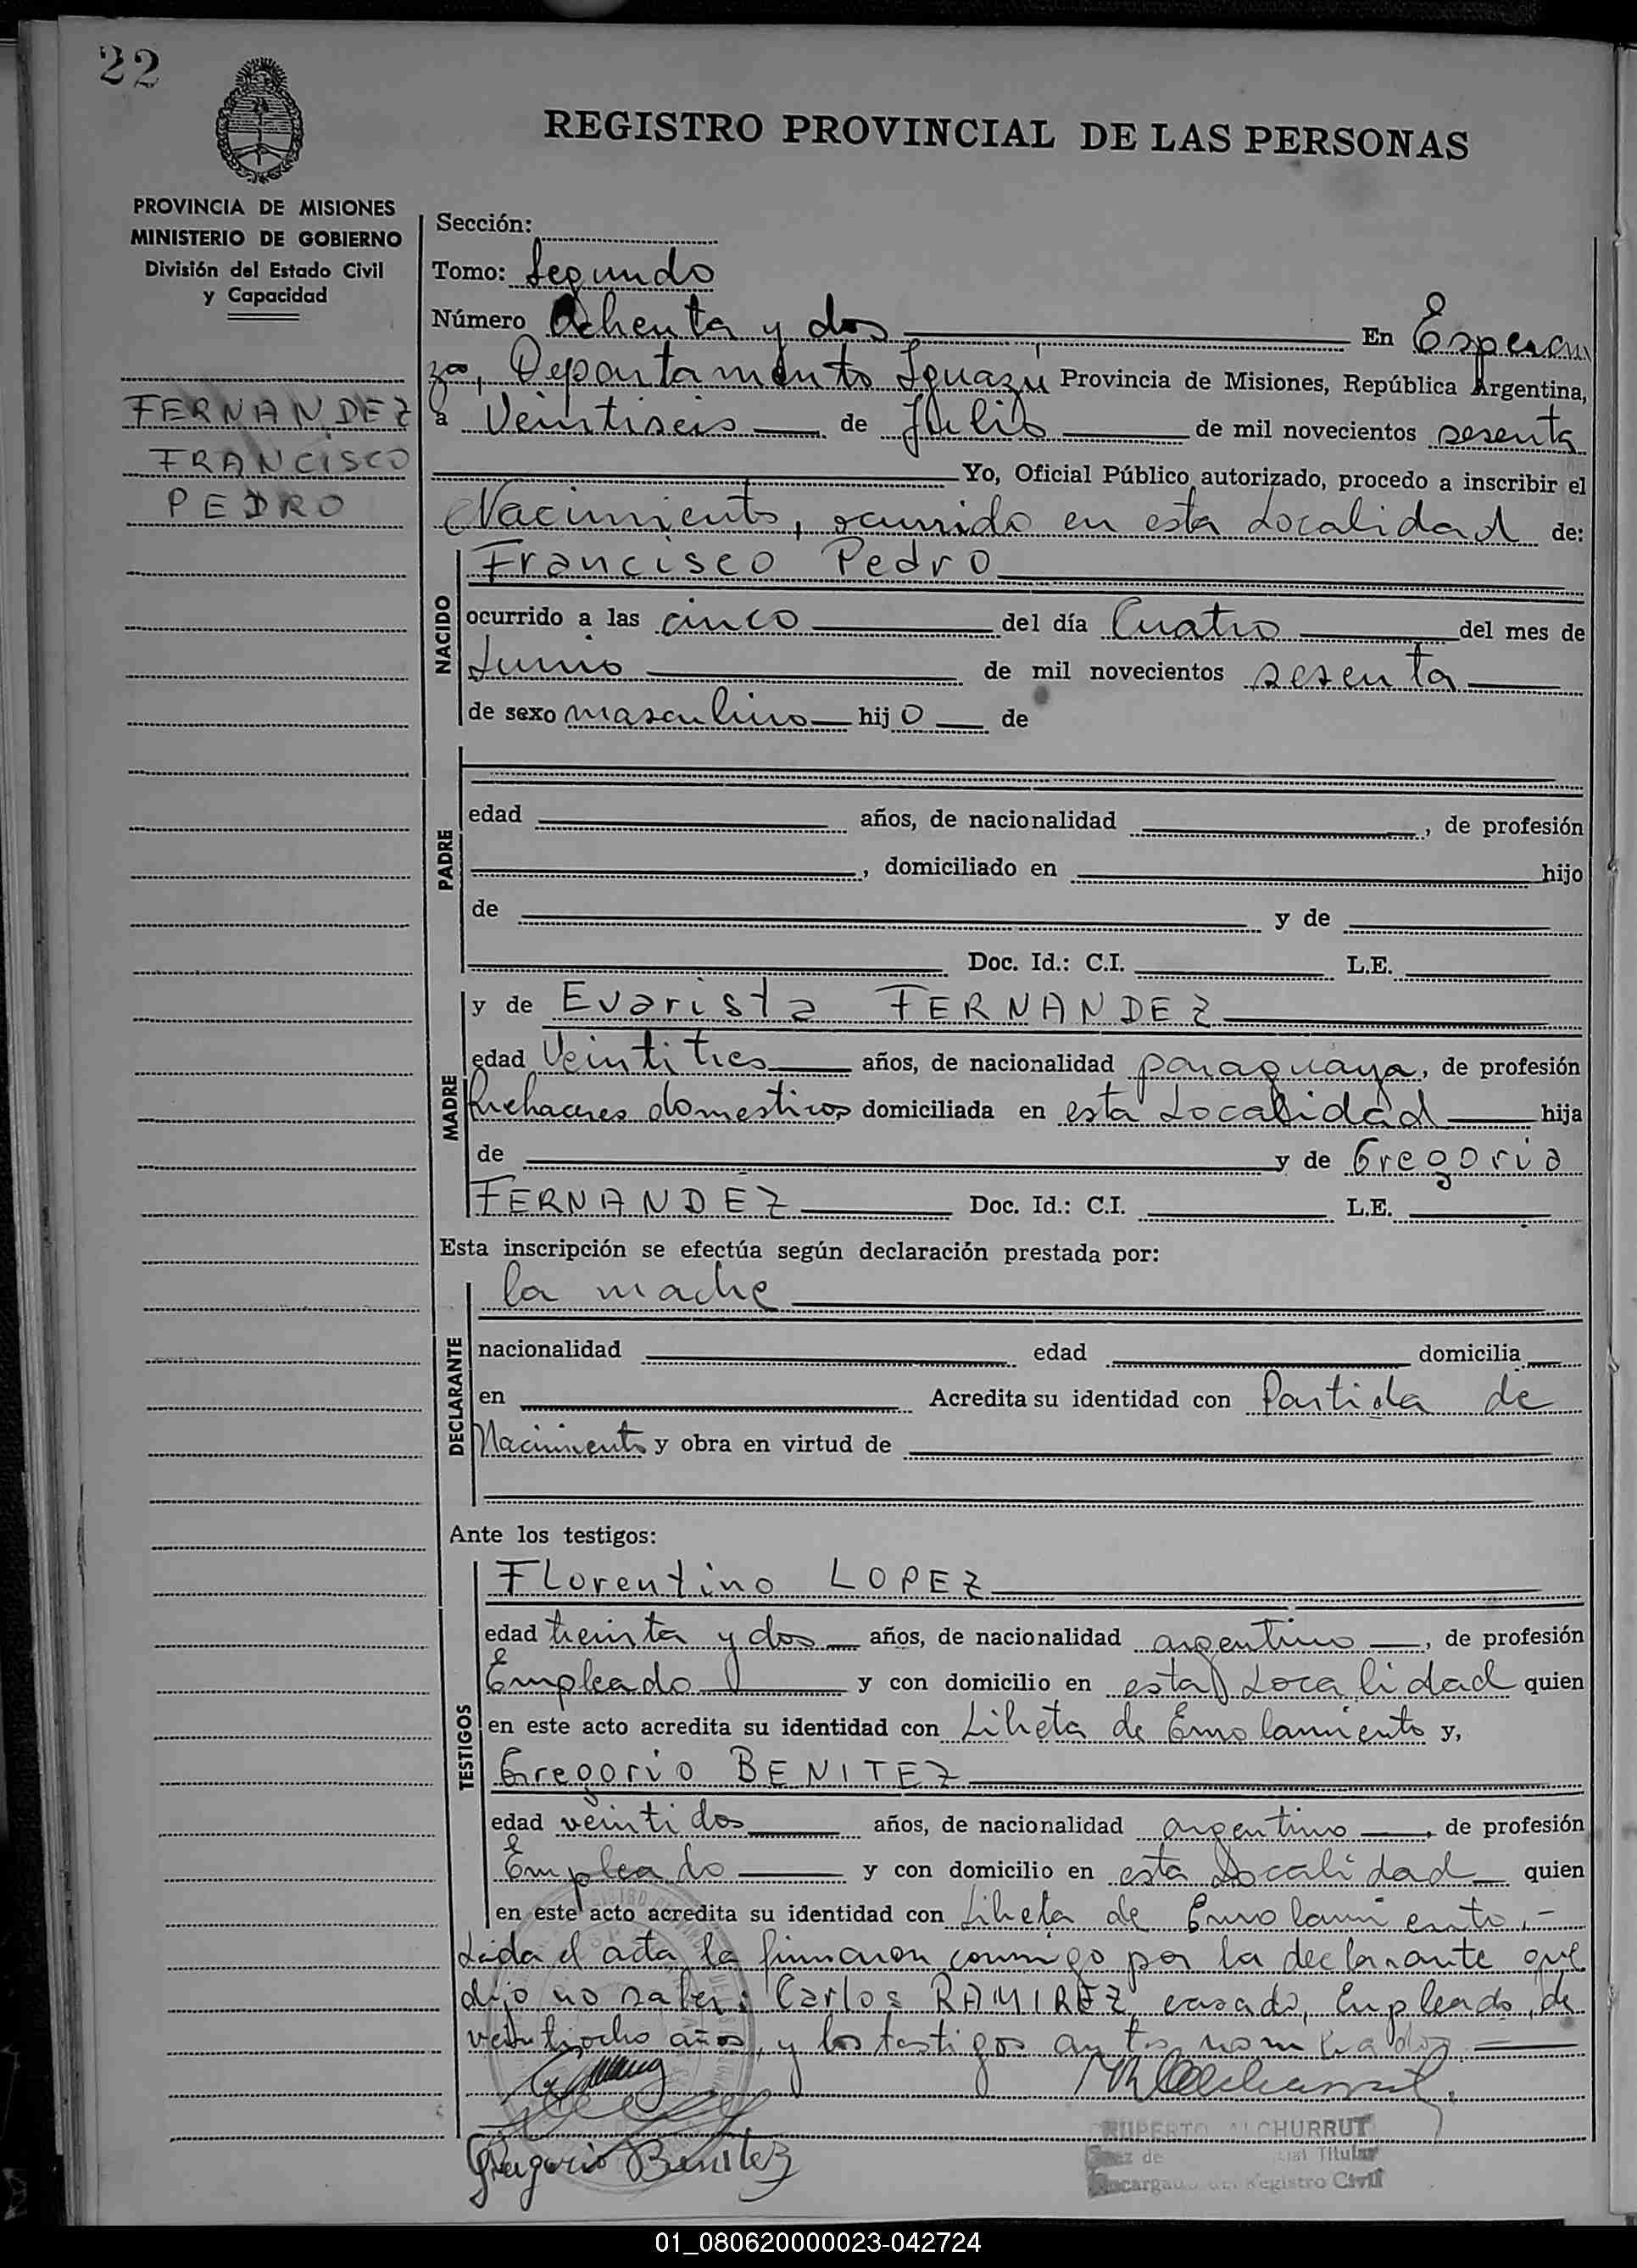 22
REGISTRO PROVINCIAL DE LAS PERSONAS
PROVINCIA DE MISIONES
MINISTERIO DE GOBIERNO
División del Estado Civil
y Capacidad
FERNANDEZ
FRANCISCO
PEDRO
Sección:
Tomo: Segundo
Número Ochenta y dos En Esperan
za, Departamento Iguazú Provincia de Misiones, República Argentina,
a Veintiseis de Julio de mil novecientos sesenta
Yo, Oficial Público autorizado, procedo a inscribir el
Nacimiento, ocurrido en esta Localidad de:
NACIDO
Francisco Pedro
ocurrido a las cinco del día Cuatro del mes de
Junio de mil novecientos sesenta
de sexo masculino hijo de
PADRE
edad años, de nacionalidad , de profesión
, domiciliado en hijo
de y de
Doc. Id.: C.I. L.E.
MADRE
y de Evarista FERNANDEZ
edad Veintitres años, de nacionalidad paraguaya, de profesión
Quehaceres domesticos domiciliada en esta Localidad hija
de y de Gregoria
FERNANDEZ Doc. Id.: C.I. L.E.
Esta inscripción se efectúa según declaración prestada por:
DECLARANTE
la madre
nacionalidad edad domicilia
en Acredita su identidad con Partida de
Nacimiento y obra en virtud de
Ante los testigos:
TESTIGOS
Florentino LOPEZ
edad treinta y dos años, de nacionalidad argentino, de profesión
Empleado y con domicilio en esta Localidad quien
en este acto acredita su identidad con Libreta de Enrolamiento y,
Gregorio BENITEZ
edad veintidos años, de nacionalidad argentino, de profesión
Empleado y con domicilio en esta Localidad quien
en este acto acredita su identidad con Libreta de Enrolamiento.-
Leida el acta la firmaron conmigo por la declarante que
dijo no saber: Carlos RAMIREZ casado, Empleado, de
veintiocho años, y los testigos antes nombrados
Gregorio Benitez
RUPERTO ALCHURRUT
Juez de Titular
Encargado del Registro Civil
01_080620000023-042724